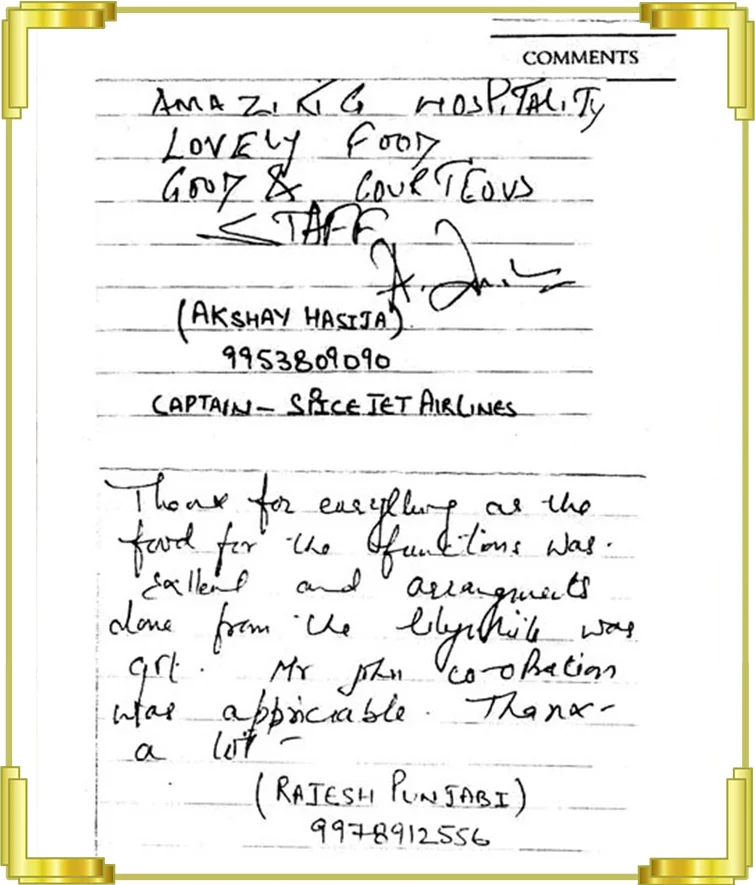 COMMENTS
AMAZING HOSPITALITY
LOVELY FOOD
GOOD & COURTEOUS
STAFF
(AKSHAY HASIJA)
9953809090
CAPTAIN - SPICE JET AIRLINES
Thanx for everything as the
food for the functions was.
and arrangments
done from the was
grt. Mr john co-opration
was appriciable. Thanx-
a lot -
(RAJESH PUNJABI)
9978912556